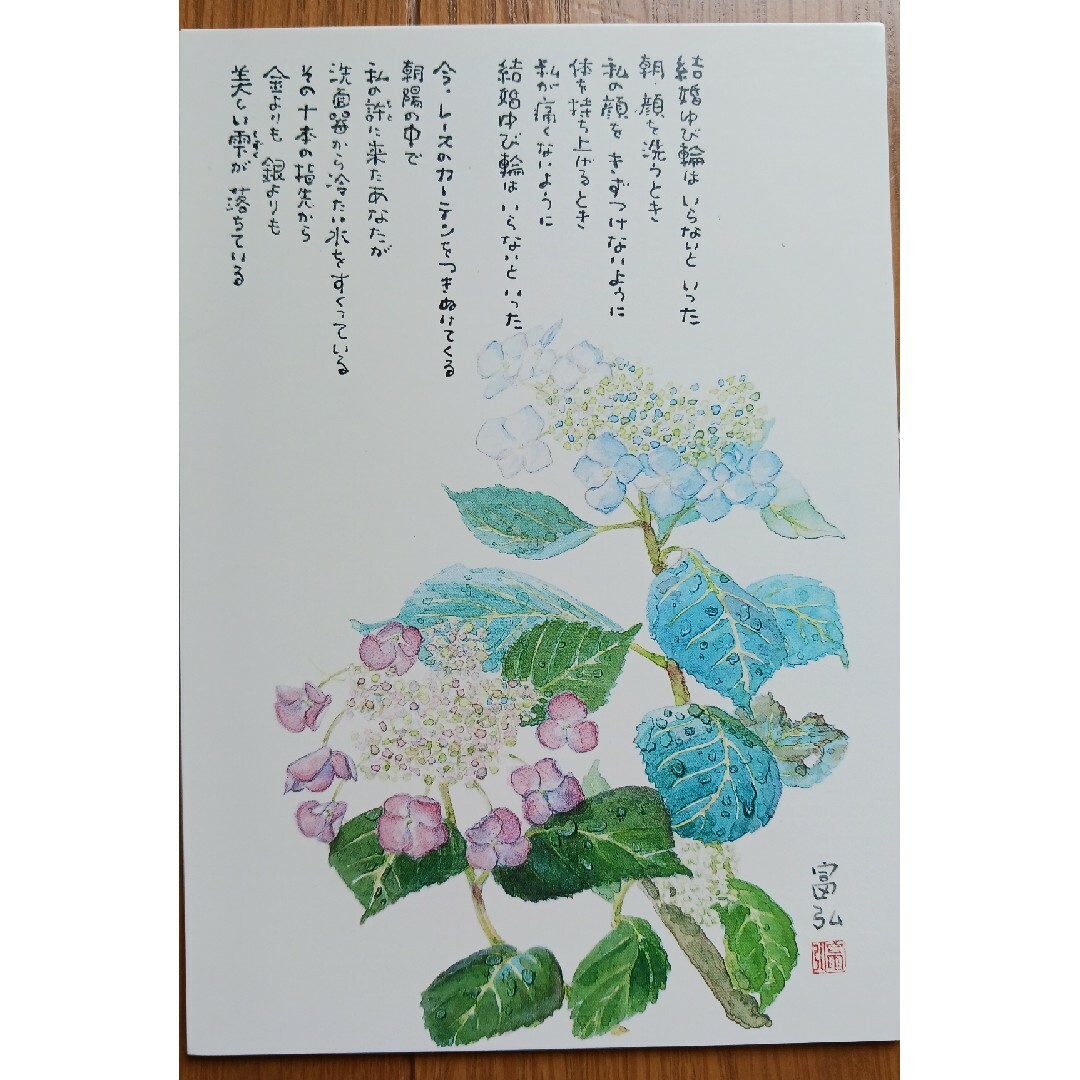 結婚ゆび輪はいらないといった
朝、顔を洗うとき
私の顔をきずつけないように
体を持ち上げるとき
私が痛くないように
結婚ゆび輪はいらないといった
今、レースのカーテンをつきぬけてくる
朝陽の中で
私の許に来たあなたが
洗面器から冷たい水をすくっている
その十本の指先から
金よりも 銀よりも
美しい雫が 落ちている
富弘